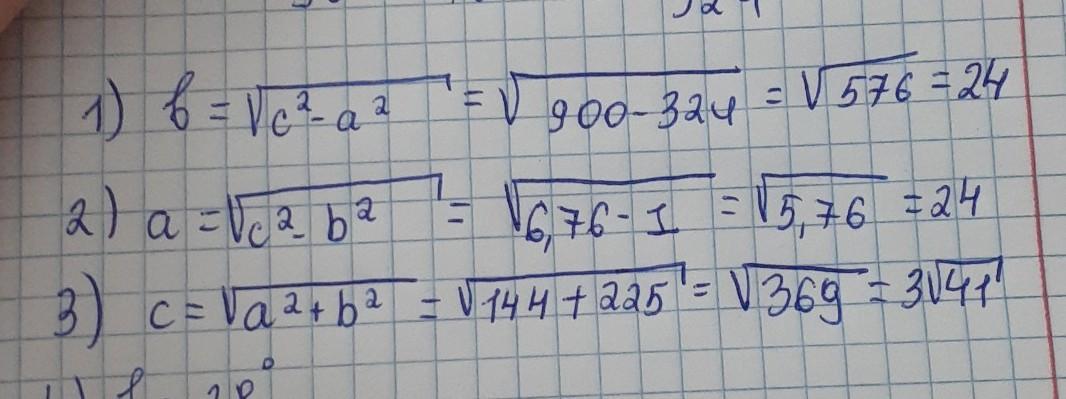 1) b = √c² - a² = √900 - 324 = √576 = 24
2) a = √c² - b² = √6,76 - 1 = √5,76 = 24
3) c = √a² + b² = √144 + 225 = √369 = 3√41